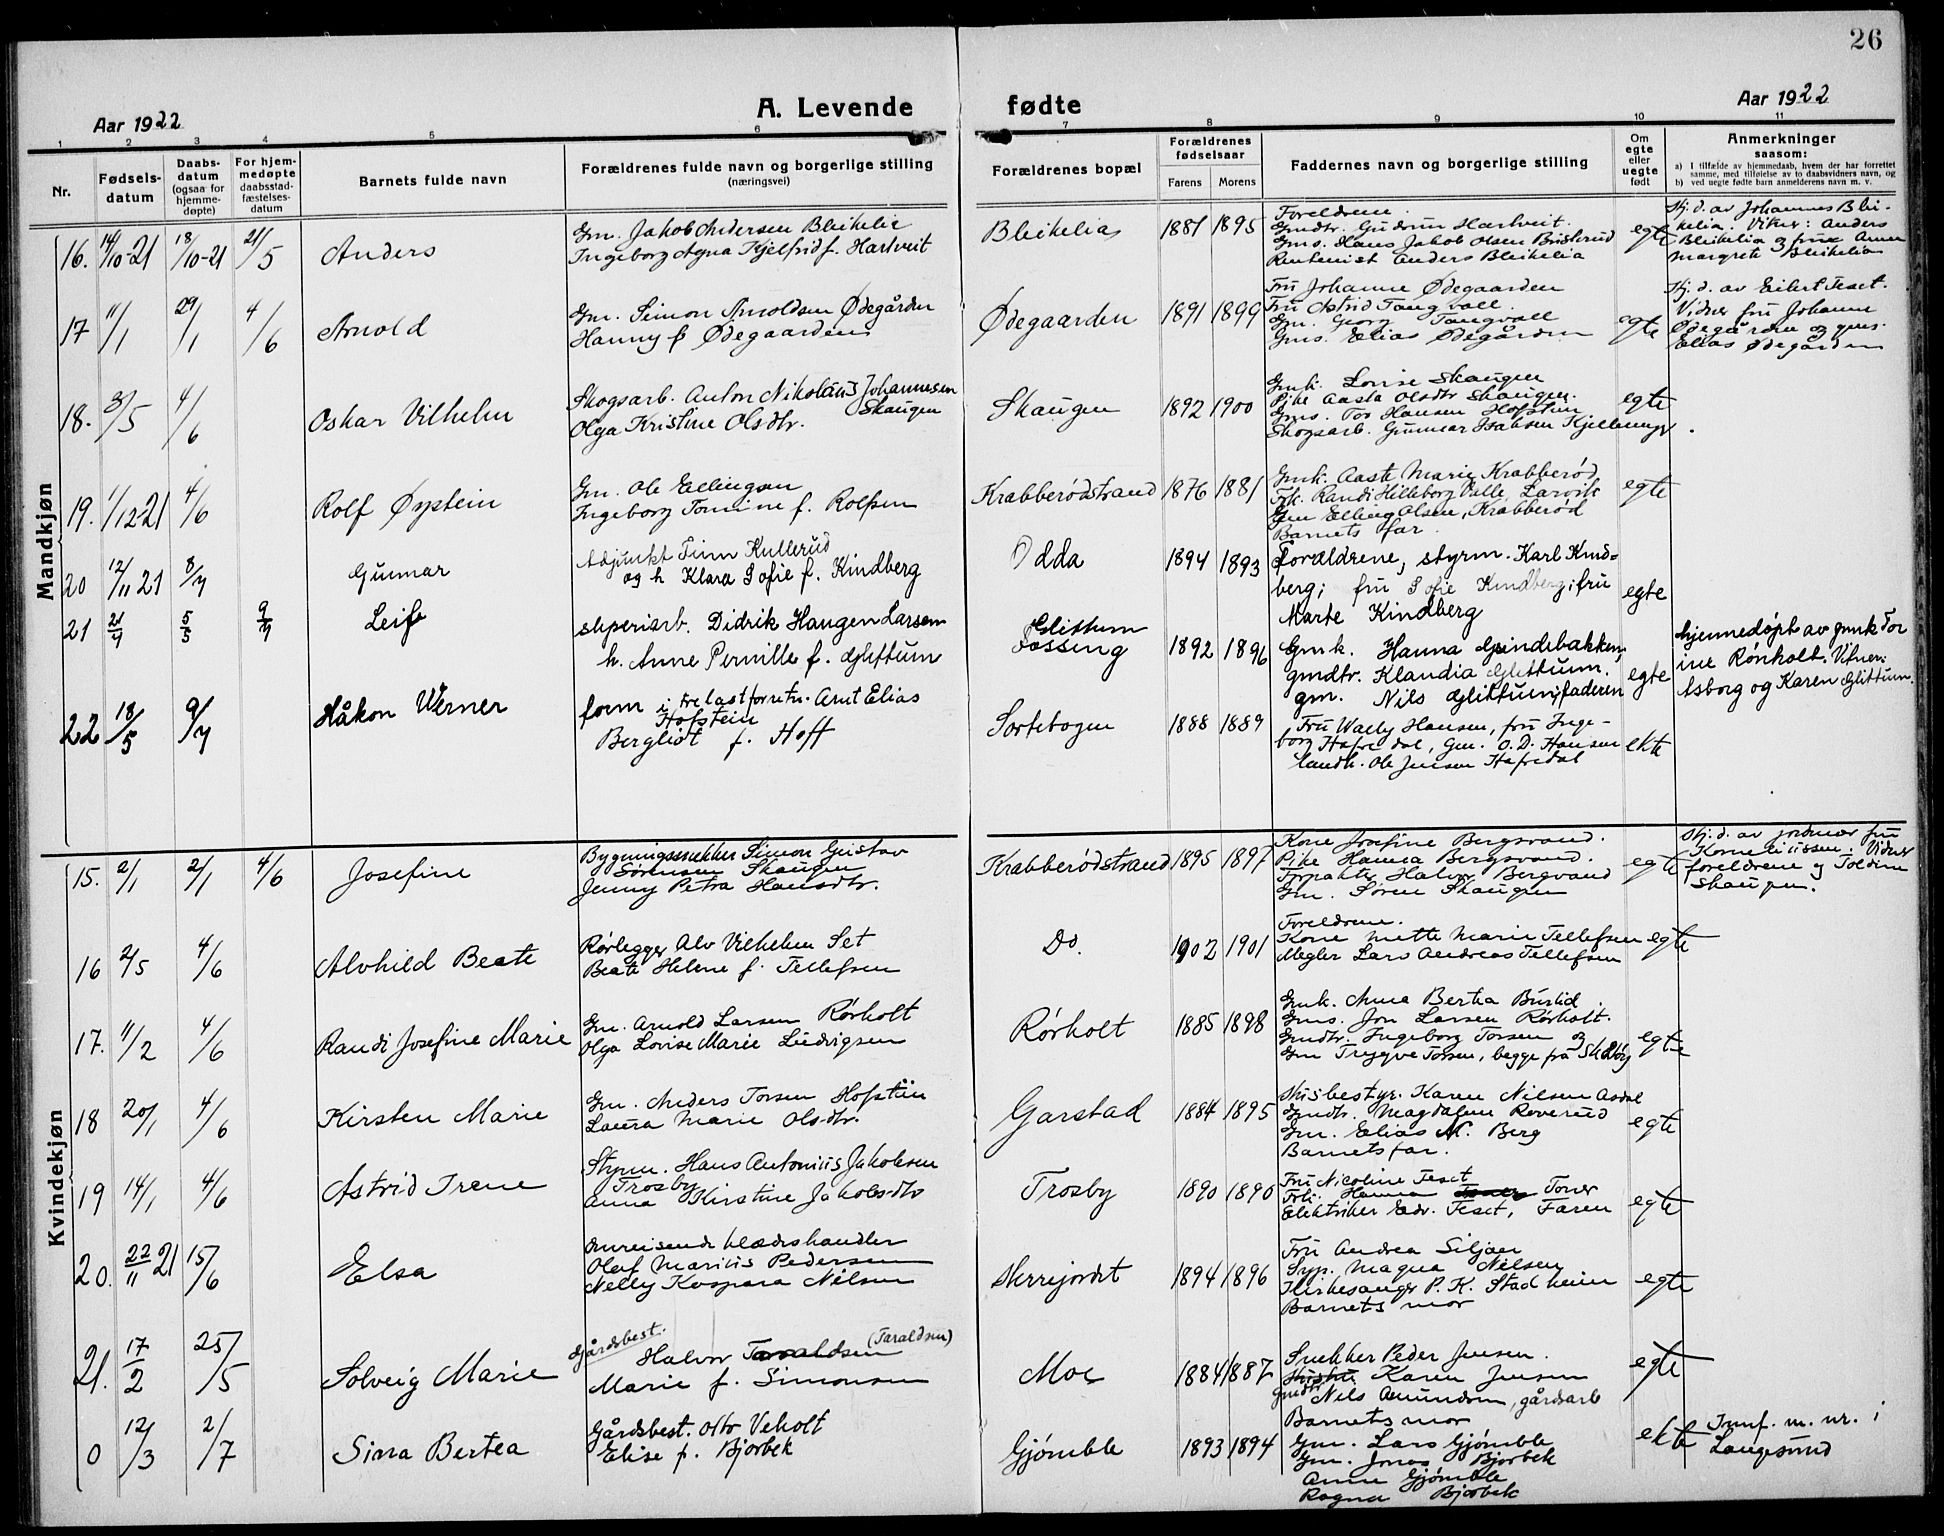 26
Aar 1922
A. Levende
fødte
Aar 1922
1 2 3 4 5 6 7 8 9 10 11
Nr.
Fødsels-
datum
Daabs-
datum
(ogsaa for
hjemme-
døpte)
For hjem-
medøpte
daabsstad-
fæstelses-
datum
Barnets fulde navn
Forældrenes fulde navn og borgerlige stilling
(næringsvei)
Forældrenes bopæl
Forældrenes
fødselsaar
Farens Morens
Faddernes navn og borgerlige stilling
Om
egte
eller
uegte
født
Anmerkninger
saasom:
a) I tilfælde av hjemmedaab, hvem der har forrettet
samme, med tilføielse av to daabsvidners navn, og
b) ved uegte fødte barn anmelderens navn m. v.
Mandkjøn
16. 14/10-21 18/10-21 21/5 Anders
Gm. Jakob Andersen Bleikelie
Ingeborg Agna Kjelfrid f. Hartveit
Bleikelia 1881 1895
Foreldrene.
Gmdtr. Gudrun Hartveit.
Gms. Hans Jakob Olsen
Rentenist Anders Bleikelia
egte
Hj. d. av Johannes Blei-
kelia. Vitner: Anders
Bleikelia og frue Anna
Margrete Bleikelia
17 11/1 29/1 4/6 Arnold
Gm. Simon Arnoldsen Ødegården
Hanny f Ødegaarden
Ødegaarden 1891 1899
Fru Johanne Ødegaarden
Fru Astrid Tangvall
Gm. Georg Tangvall
Gms. Elias Ødegården
egte
Hj. d. av Eilert Teset.
Vidner fru Johanne
Ødegården og gms.
Elias Ødegården
18. 3/5 4/6 Oskar Vilhelm
Skogsarb. Anton Nikolaus Johannesen
Skaugen
Olga Kristine Olsdtr.
Skaugen 1892 1900
Gmk. Lovise Skaugen
Pike Aasta Olsdtr Skaugen.
Gms. Tor Hansen Hofstein
Skogsarb. Gunnar Isaksen
egte
19. 1/12-21 4/6 Rolf Øystein
Gm. Ole Ellingsen
Ingeborg Tomine f. Rolfsen
Krabberødstrand 1876 1881
Gmk. Aaste Marie Krabberød
Frk. Randi Hilleborg Valle, Larvik
Gm Elling Olsen, Krabberød
Barnets far.
egte
20 12/11 21 8/7 Gunnar
Adjunkt Finn Kullerud
og h Klara Sofie f. Kindberg
Odda 1894 1893
Foræld­rene, styrm. Karl Kind-
berg; fru Sofie Kindberg; fru
Marte Kindberg
egte
21 21/4 5/5 9/7 Leif
sliperiarb. Didrik Haugen Larsen
h. Anne Pernille f. Glittum
Glittum
Fossing 1892 1896
Gmk. Hanna Grindbakken,
gmdtr. Klaudia Glittum.
gm. Nils Glittum, faderen
egte
hjemmedøpt av gmk Tor
ine Rønholt. Vitner:
Asborg og Karen Glittum.
22 18/5 9/7 Håkon Werner
form i trelastforretn. Arnt Elias
Hofstein
Bergliot f. Hoff
Sortebogen 1888 1889
Fru Wally Hansen, fru Inge-
borg Hafredal, Gm. O. D. Hansen
landh. Ole Jensen Hafredal
ekte
Kvindekjøn
15. 2/1 2/1 4/6 Josefine
Bygningssnekker Simon Gustav
Sørensen Skaugen
Jenny Petra Hansdtr.
Krabberødstrand 1895 1897
Kone Josefine Bergsvand.
Pike Hanna Bergsvand.
Forpakter Halvor Bergsvand
Gm. Søren Skaugen
egte
Hj. d. av jordmor fru
Korneliussen. Vidner
foreldrene og Toldine
Skaugen.
16 2/5 4/6 Alvhild Beate
Rørlegger Alv Vilhelm Set
Beate Helene f. Tellefsen
Do. 1902 1901
Foreldrene.
Kone Mette Marie Tellefsen
Megler Lars Andreas Tellefsen
egte
17. 11/2 4/6 Randi Josefine Marie
Gm. Arnold Larsen Rørholt
Olga Lovise Marie Ludvigsen
Rørholt 1885 1898
Gmk. Anna Berta Bustid.
Gms. Jon Larsen Rørholt.
Gmdtr. Ingeborg Torsen og
Gm Trygve Torsen, begge fra
egte
18 20/1 4/6 Kirsten Marie
Gm. Anders Torsen Hofstein
Laura Marie Olsdtr.
Garstad 1884 1895
Husbestyr. Karen Nilsen Asdal
Gmdtr. Magdalene Roverud
Gm. Elias N. Berg
Barnets far.
egte
19 14/1 4/6 Astrid Irene
Styrm. Hans Antonius Jakobsen
Trosby
Anna Kirstine Jakobsdtr
Trosby 1890 1890
Fru Nicoline Teset
Frk. Hanna Toner
Elektriker Edv. Teset, Faren
egte
20. 22/11 21 15/6 Elsa
Omreisende klædeshandler
Olaf Marius Pedersen
Nelly Kaspara Nilsen
Herrejordet 1894 1896
Fru Andrea Siljan
Syp. Magna Nilsen
Kirkesanger P. K. Stadheim
Barnets mor
egte
21. 17/2 25/5 Solveig Marie
Gårdsbest.
Halvor Taraldsen (Taraldsen)
Marie f. Simonsen
Moe 1884 1887
Snekker Peder Jensen.
Gmdtr. Karen Jensen
Nils Amundsen, gårdsarb
Barnets mor
egte
0 12/3 2/7 Sina Bertea
Gårdsbest. Otto Veholt
Elise f. Bjorbek
Gjømble 1893 1894
Gm. Lars Gjømble
Gm. Jonas Bjorbek
Anne Gjømble
Ragna Bjorbek
ekte
Innf. m. nr. i
Langesund